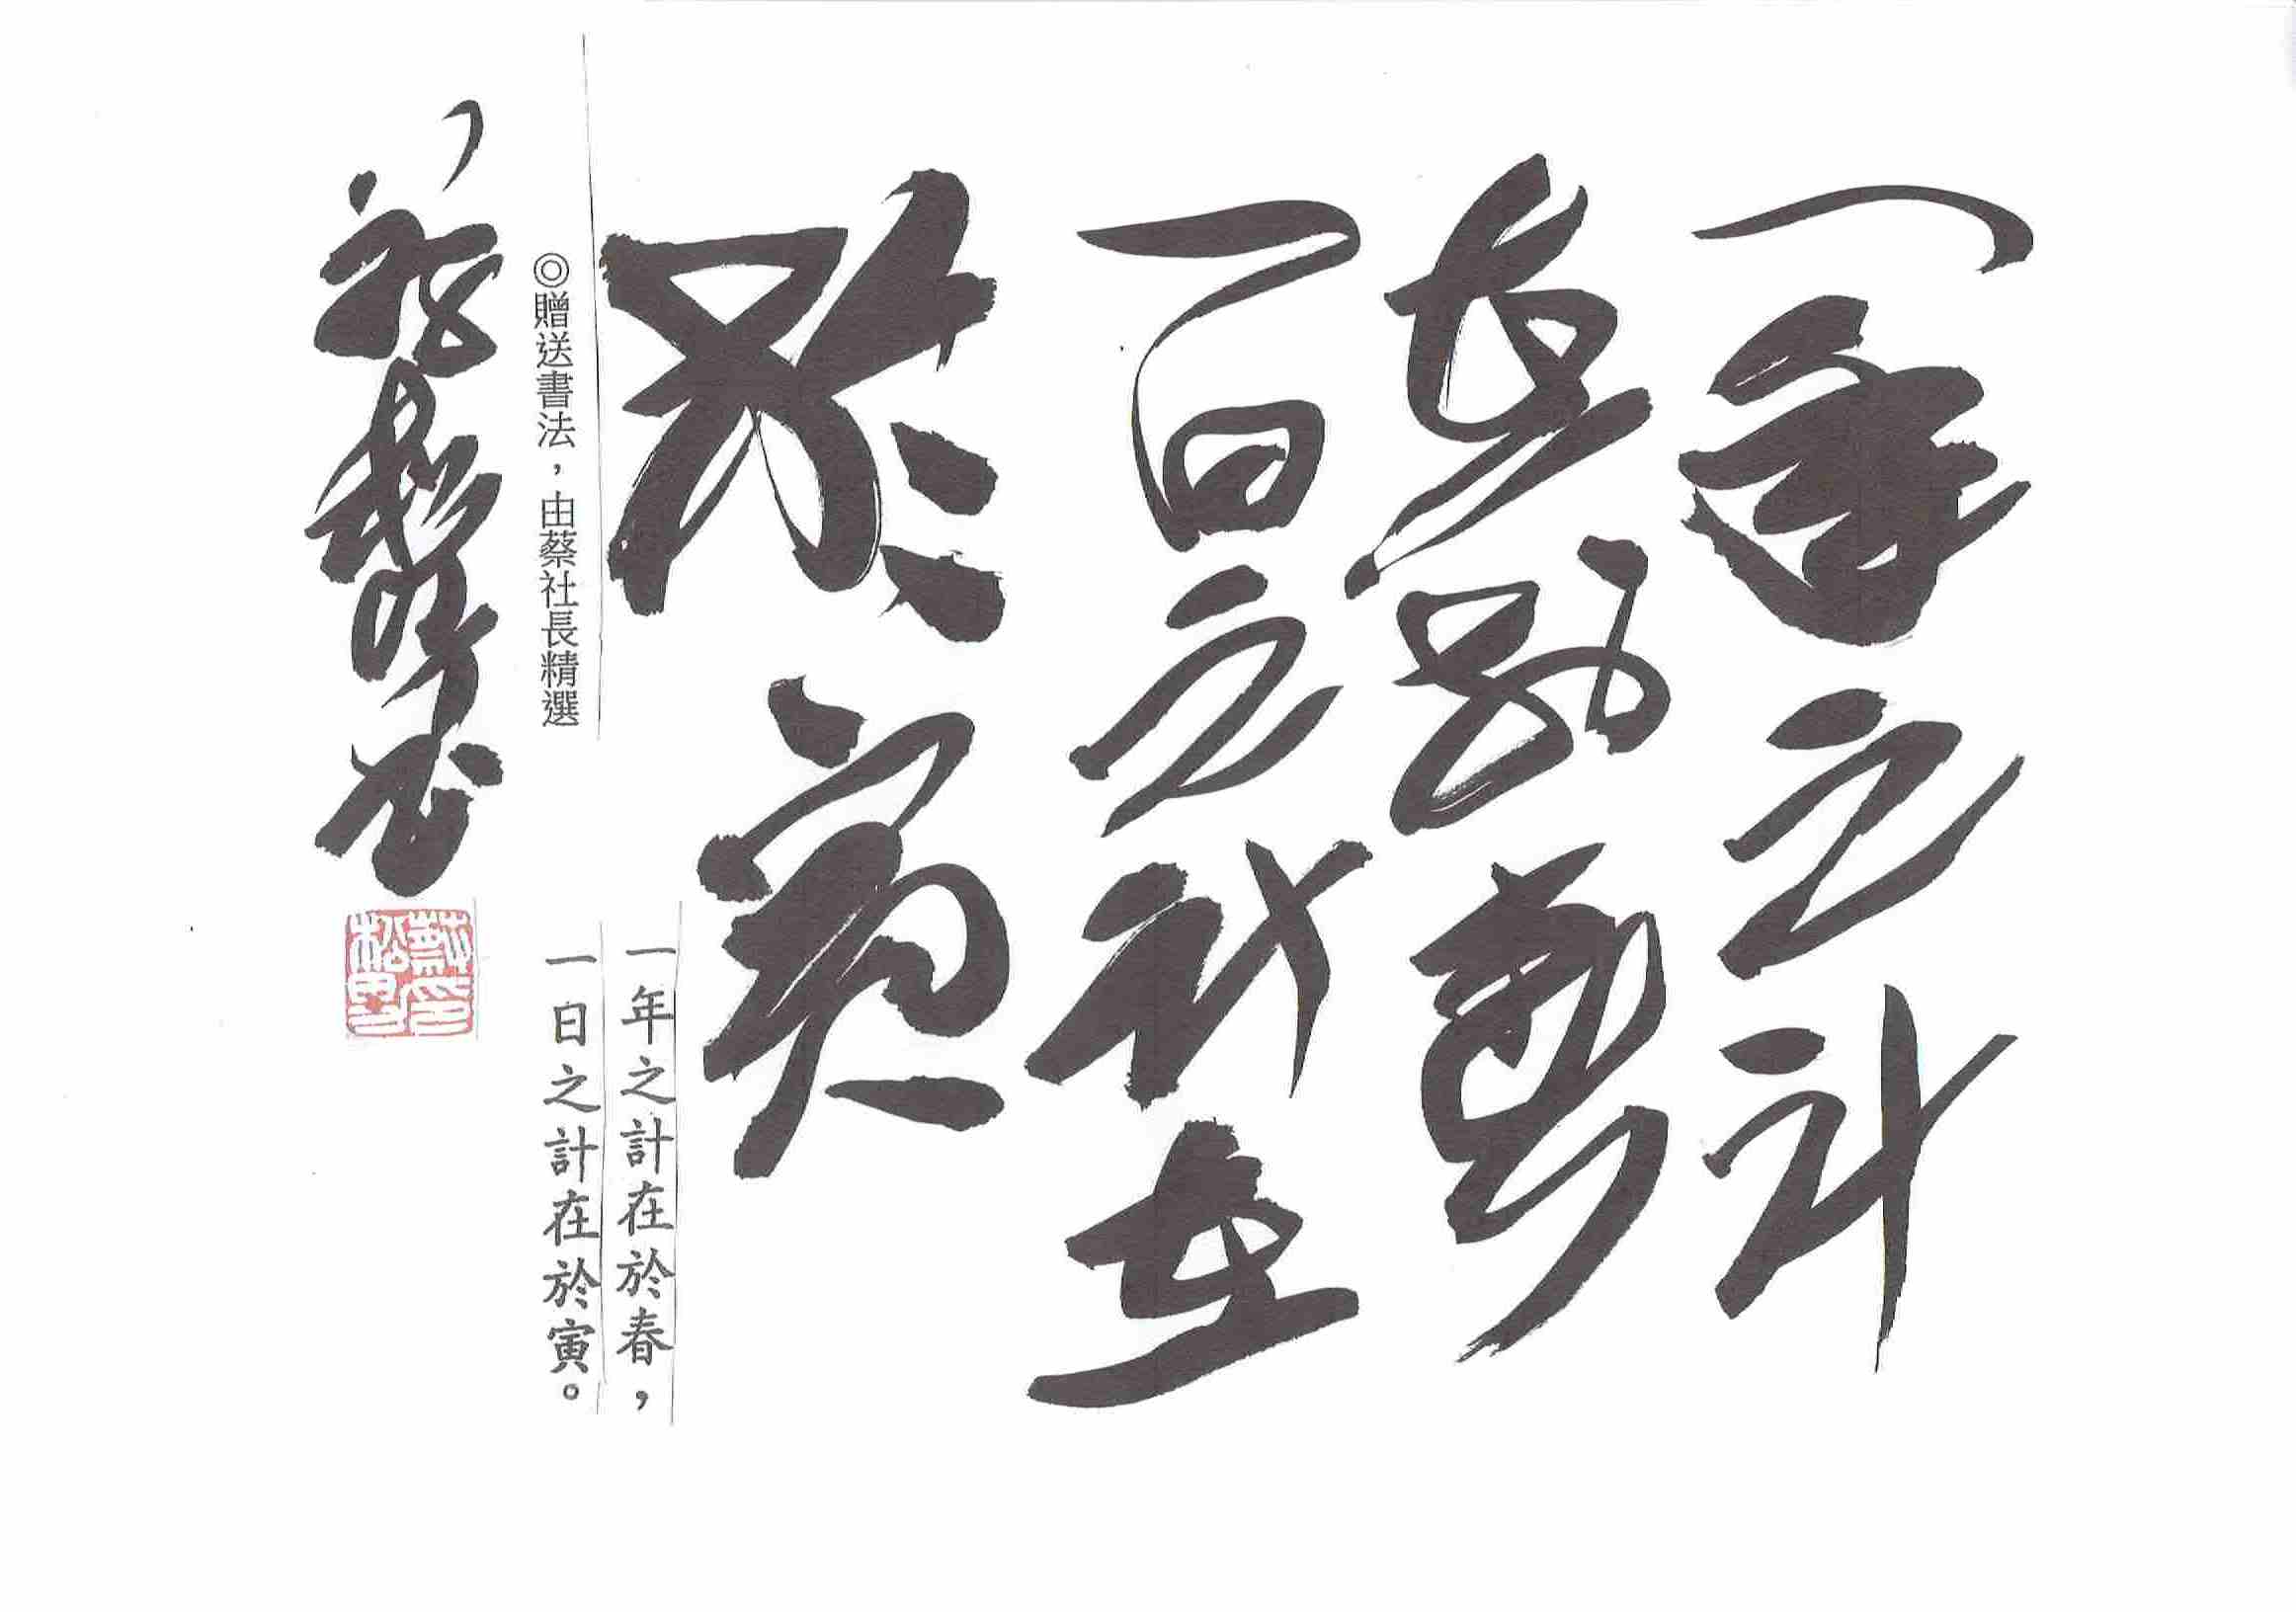 一年之計
在於春
一日之計在
於寅
◎贈送書法，由蔡社長精選
一年之計在於春，
一日之計在於寅。